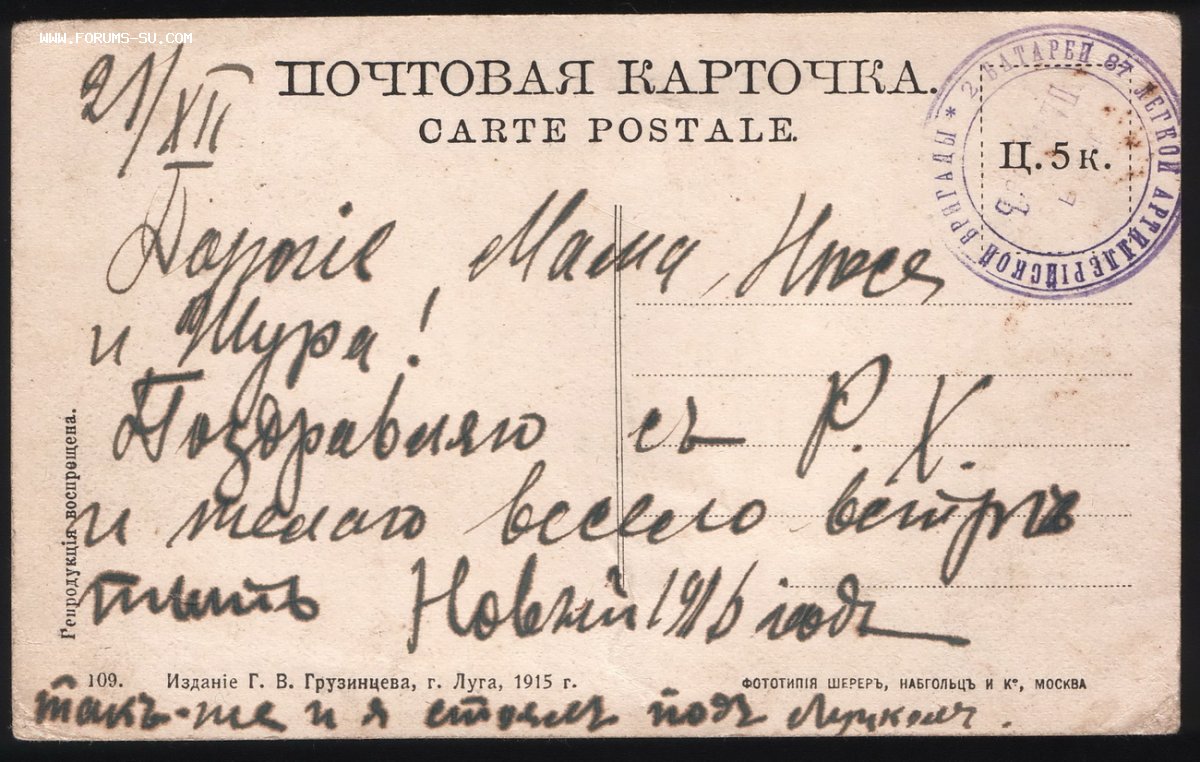 WWW.FORUMS-SU.COM
21/XII
ПОЧТОВАЯ КАРТОЧКА.
CARTE POSTALE.
* 2 БАТАРЕИ 87 ЛЕГКОЙ АРТИЛЛЕРІЙСКОЙ БРИГАДЫ
Ц. 5 к.
Дорогіе, Мама, Нюся
и Шура!
Поздравляю съ Р. Х.
и желаю весело встрѣ
тить Новый 1916 годъ
Репродукція воспрещена.
109. Изданіе Г. В. Грузинцева, г. Луга, 1915 г.
ФОТОТИПІЯ ШЕРЕРЪ, НАБГОЛЬЦЪ И Кº, МОСКВА
такъ-же и я стоялъ подъ Луцкомъ.